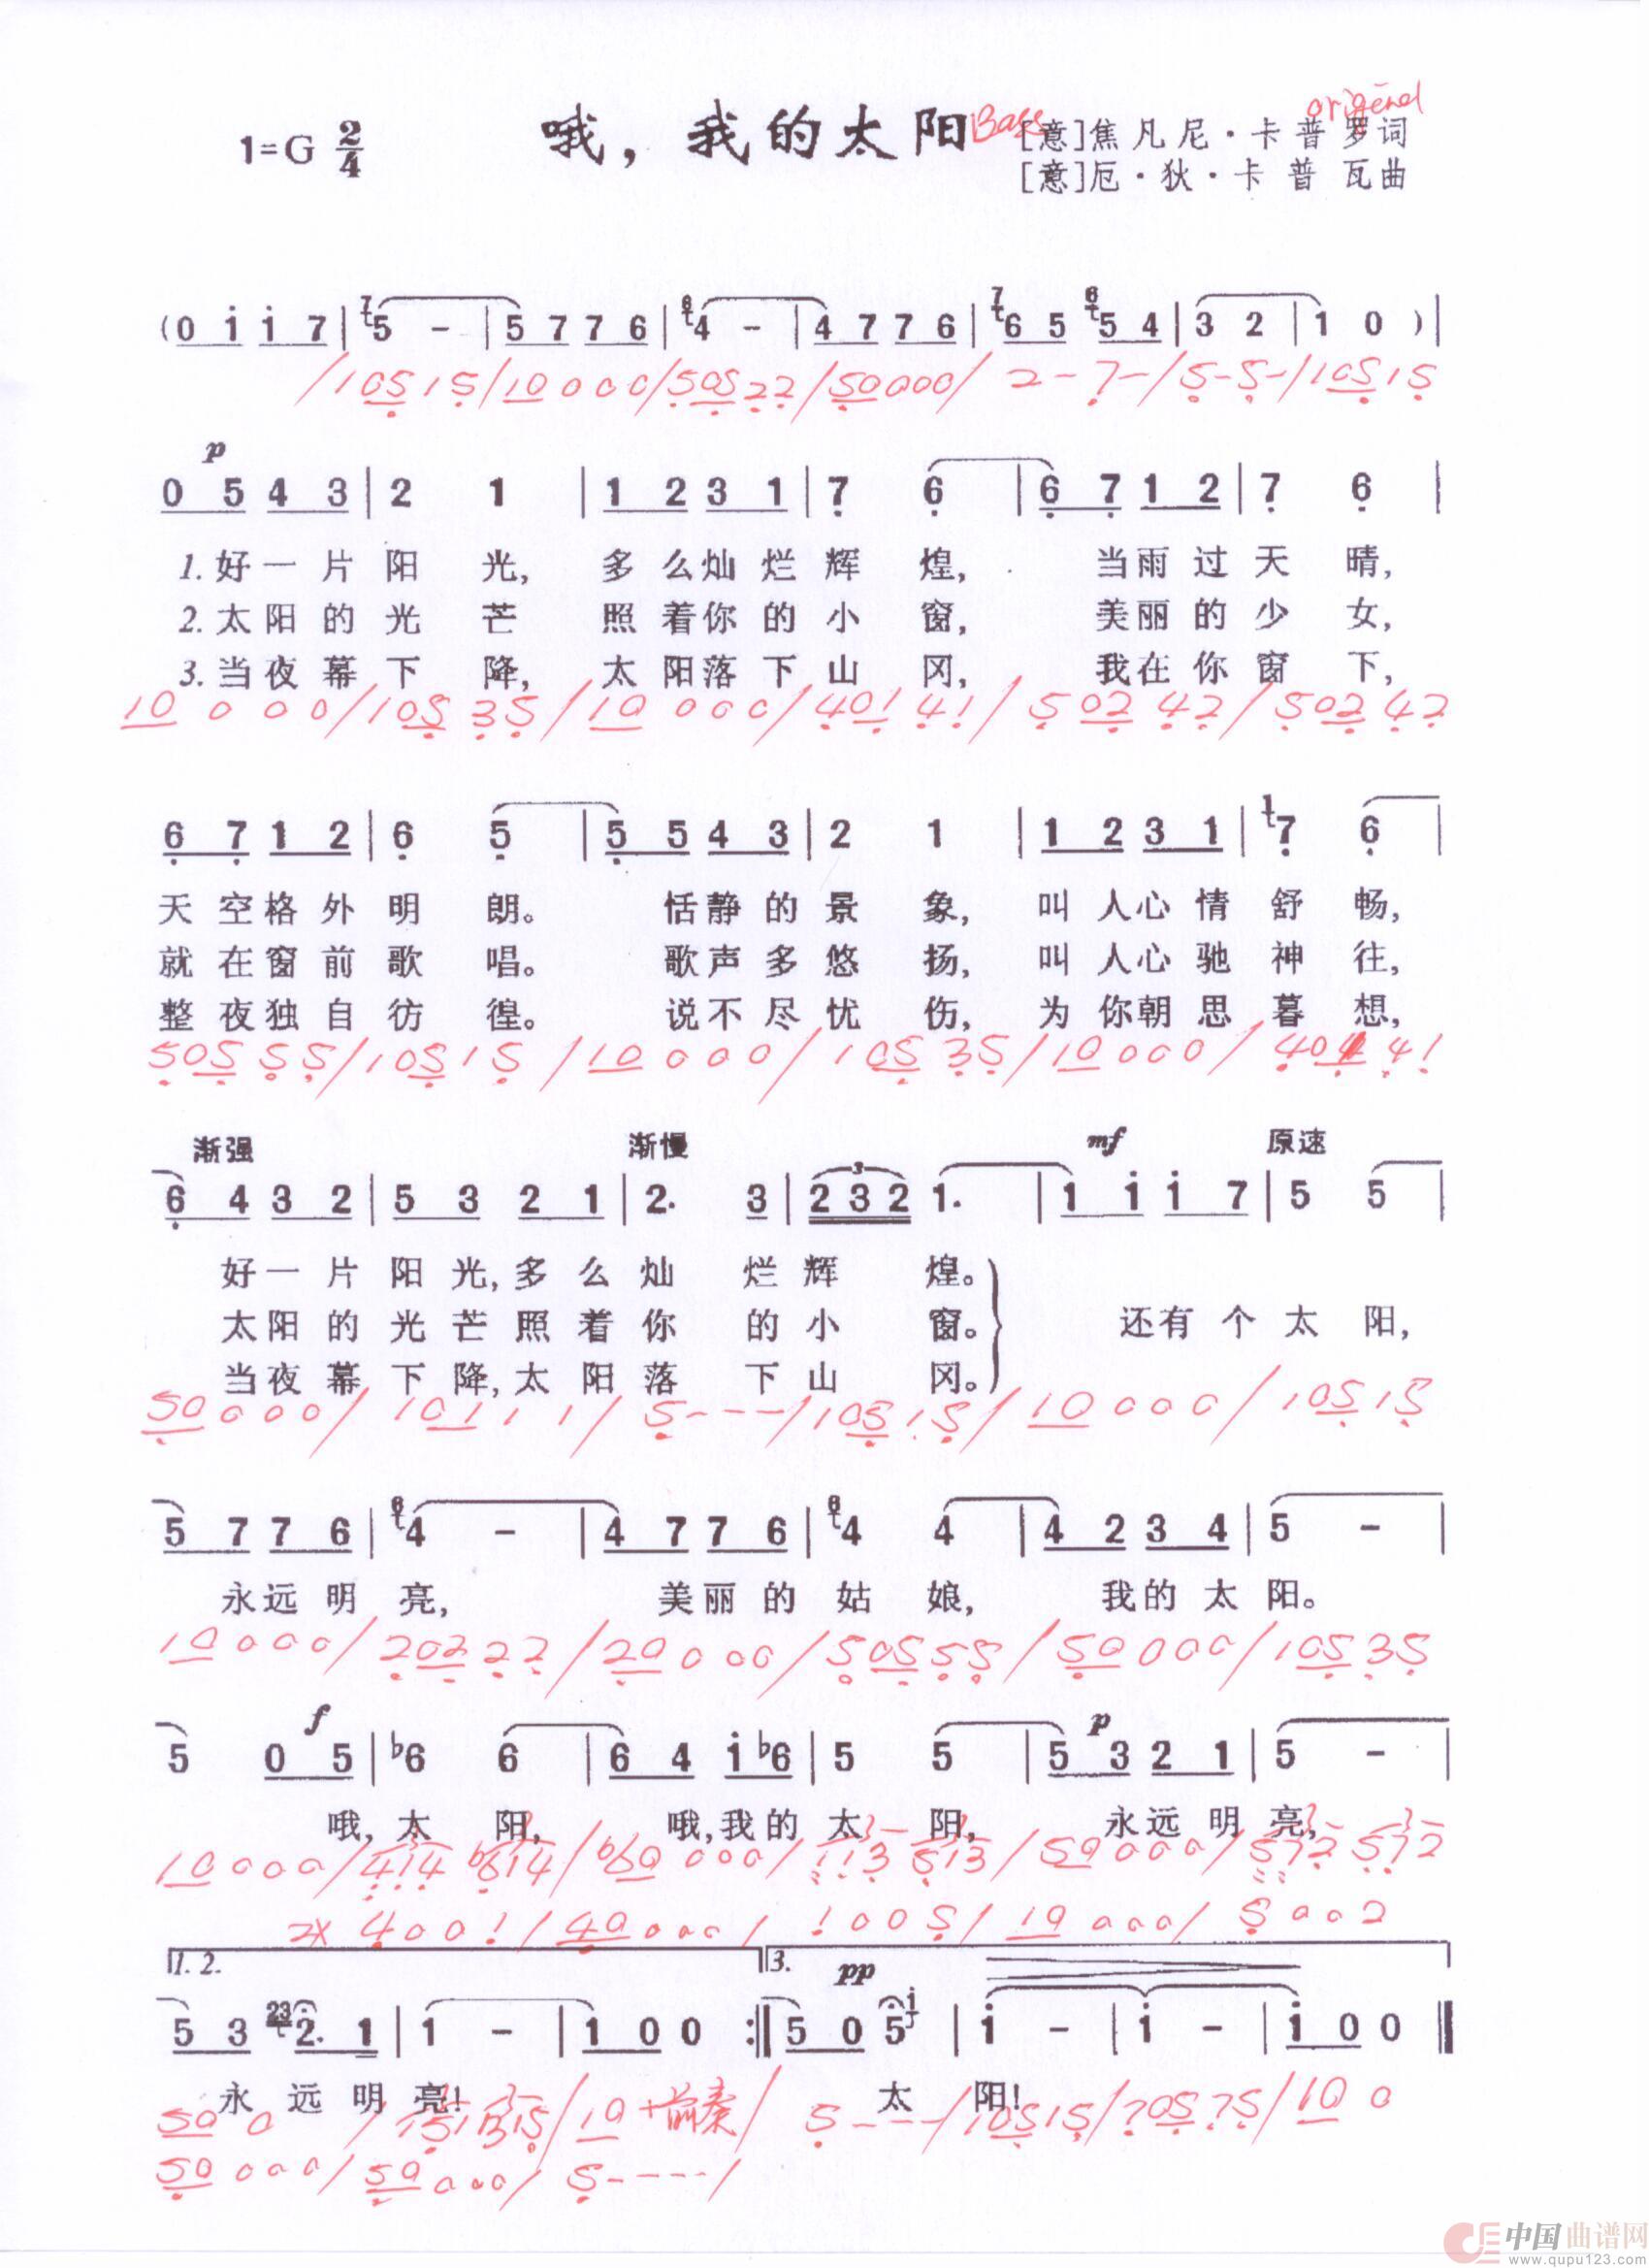 哦，我的太阳 Bass
origenal
1=G 2/4
[意]焦凡尼·卡普罗词
[意]厄·狄·卡普瓦曲
(0 i i 7 | 5 - | 5 7 7 6 | 4 - | 4 7 7 6 | 6 5 5 4 | 3 2 | 1 0 )|
/105 15/10 0 0 0/505 22/50000/ 2-7-/5-5-/105 15
p
0 5 4 3 | 2 1 | 1 2 3 1 | 7 6 | 6 7 1 2 | 7 6 |
1.好一片阳光，多么灿烂辉煌，当雨过天晴，
2.太阳的光芒照着你的小窗，美丽的少女，
3.当夜幕下降，太阳落下山冈，我在你窗下，
10 0 0 0/105 35/10 0 0 0/401 41/502 42/502 42
6 7 1 2 | 6 5 | 5 5 4 3 | 2 1 | 1 2 3 1 | 7 6 |
天空格外明朗。恬静的景象，叫人心情舒畅，
就在窗前歌唱。歌声多悠扬，叫人心驰神往，
整夜独自彷徨。说不尽忧伤，为你朝思暮想，
505 55/105 15/10 0 0 0/105 35/10 0 0 0/
渐强 渐慢 mf 原速
6 4 3 2 | 5 3 2 1 | 2. 3 | 2 3 2 1. | 1 i i 7 | 5 5 |
好一片阳光，多么灿烂辉煌。
太阳的光芒照着你的小窗。
当夜幕下降，太阳落下山冈。
还有个太阳，
50 0 0 0/101 1 1/5---/105 15/10 0 0 0/105 15
5 7 7 6 | 4 - | 4 7 7 6 | 4 4 | 4 2 3 4 | 5 - |
永远明亮，美丽的姑娘，我的太阳。
10 0 0 0/202 22/20 0 00/505 55/50 0 0 0/105 35
f p
5 0 5 | ♭6 6 | 6 4 i ♭6 | 5 5 | 5 3 2 1 | 5 - |
哦，太阳，哦，我的太阳，永远明亮，
10 0 0 0/414 ♭614/♭60 0 0 0/113 513/50 0 0 0/572 572
2X 4 0 0 1/40 0 0 0/1 0 0 5/10 0 0 0/5 0 0 2
1. 2. 3. pp
5 3 2. 1 | 1 - | 1 0 0 :|| 5 0 5 | i - | i - | i 0 0 ||
永远明亮！太阳！
50 0 /151 315/10 +前奏/5---/105 15/705 75/10 0
50 0 0 0/50 0 0 0/5----/
中国曲谱网
www.qupu123.com